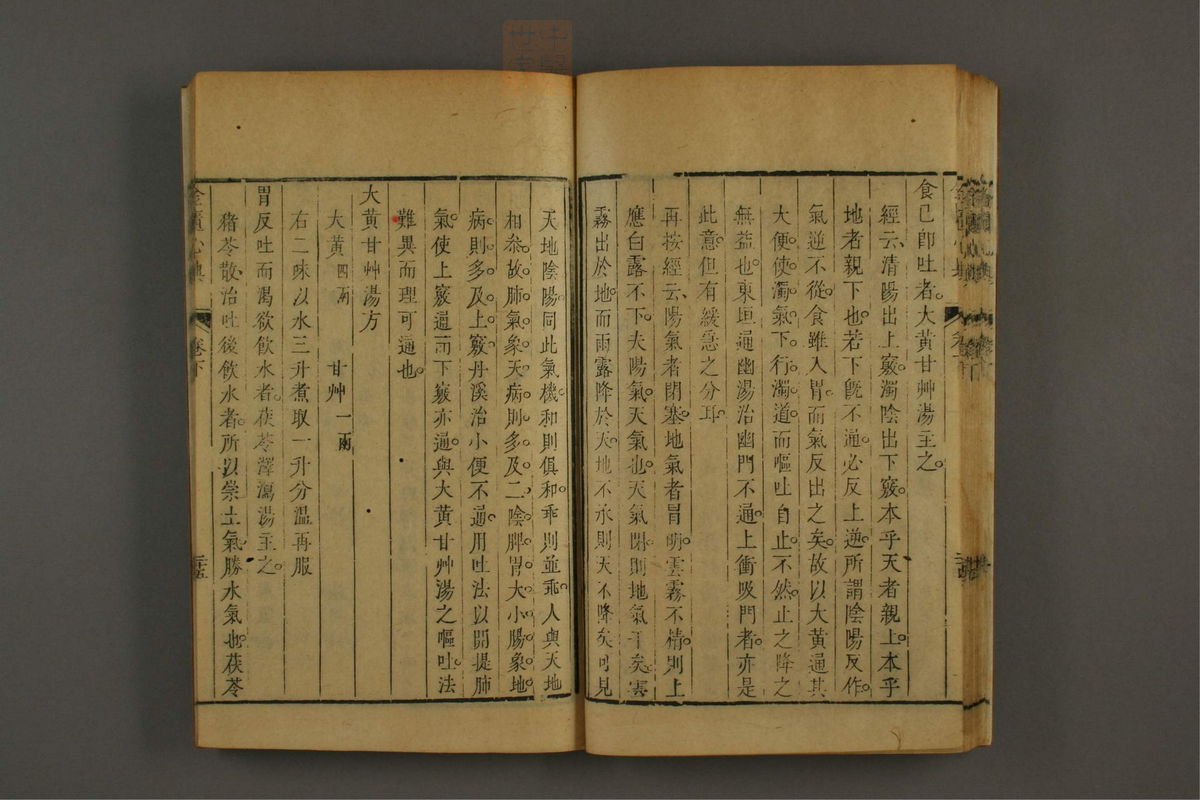 食已即吐者大黃甘艸湯主之
經云清陽出上竅濁陰出下竅本乎天者親上本乎
地者親下也若下既不通必反上逆所謂陰陽反作
氣逆不從食雖入胃而氣反出之矣故以大黃通其
大便使濁氣下行濁道而嘔吐自止不然止之降之
無益也東垣通幽湯治幽門不通上衝吸門者亦是
此意但有緩急之分耳
再按經云陽氣者閉塞地氣者冒明雲霧不精則上
應白露不下夫陽氣天氣也天氣閉則地氣干矣雲
霧出於地而雨露降於天地不承則天不降矣可見
天地陰陽同此氣機和則俱和乖則並乖人與天地
相叅故肺氣象天病則多及二陰脾胃大小腸象地
病則多及上竅丹溪治小便不通用吐法以開提肺
氣使上竅通而下竅亦通與大黃甘艸湯之嘔吐法
難異而理可通也
大黃甘艸湯方
大黃四兩 甘艸一兩
右二味以水三升煮取一升分溫再服
胃反吐而渴欲飲水者茯苓澤瀉湯主之
豬苓散治吐後飲水者所以崇土氣勝水氣也茯苓
金匱心典 卷下 二十五